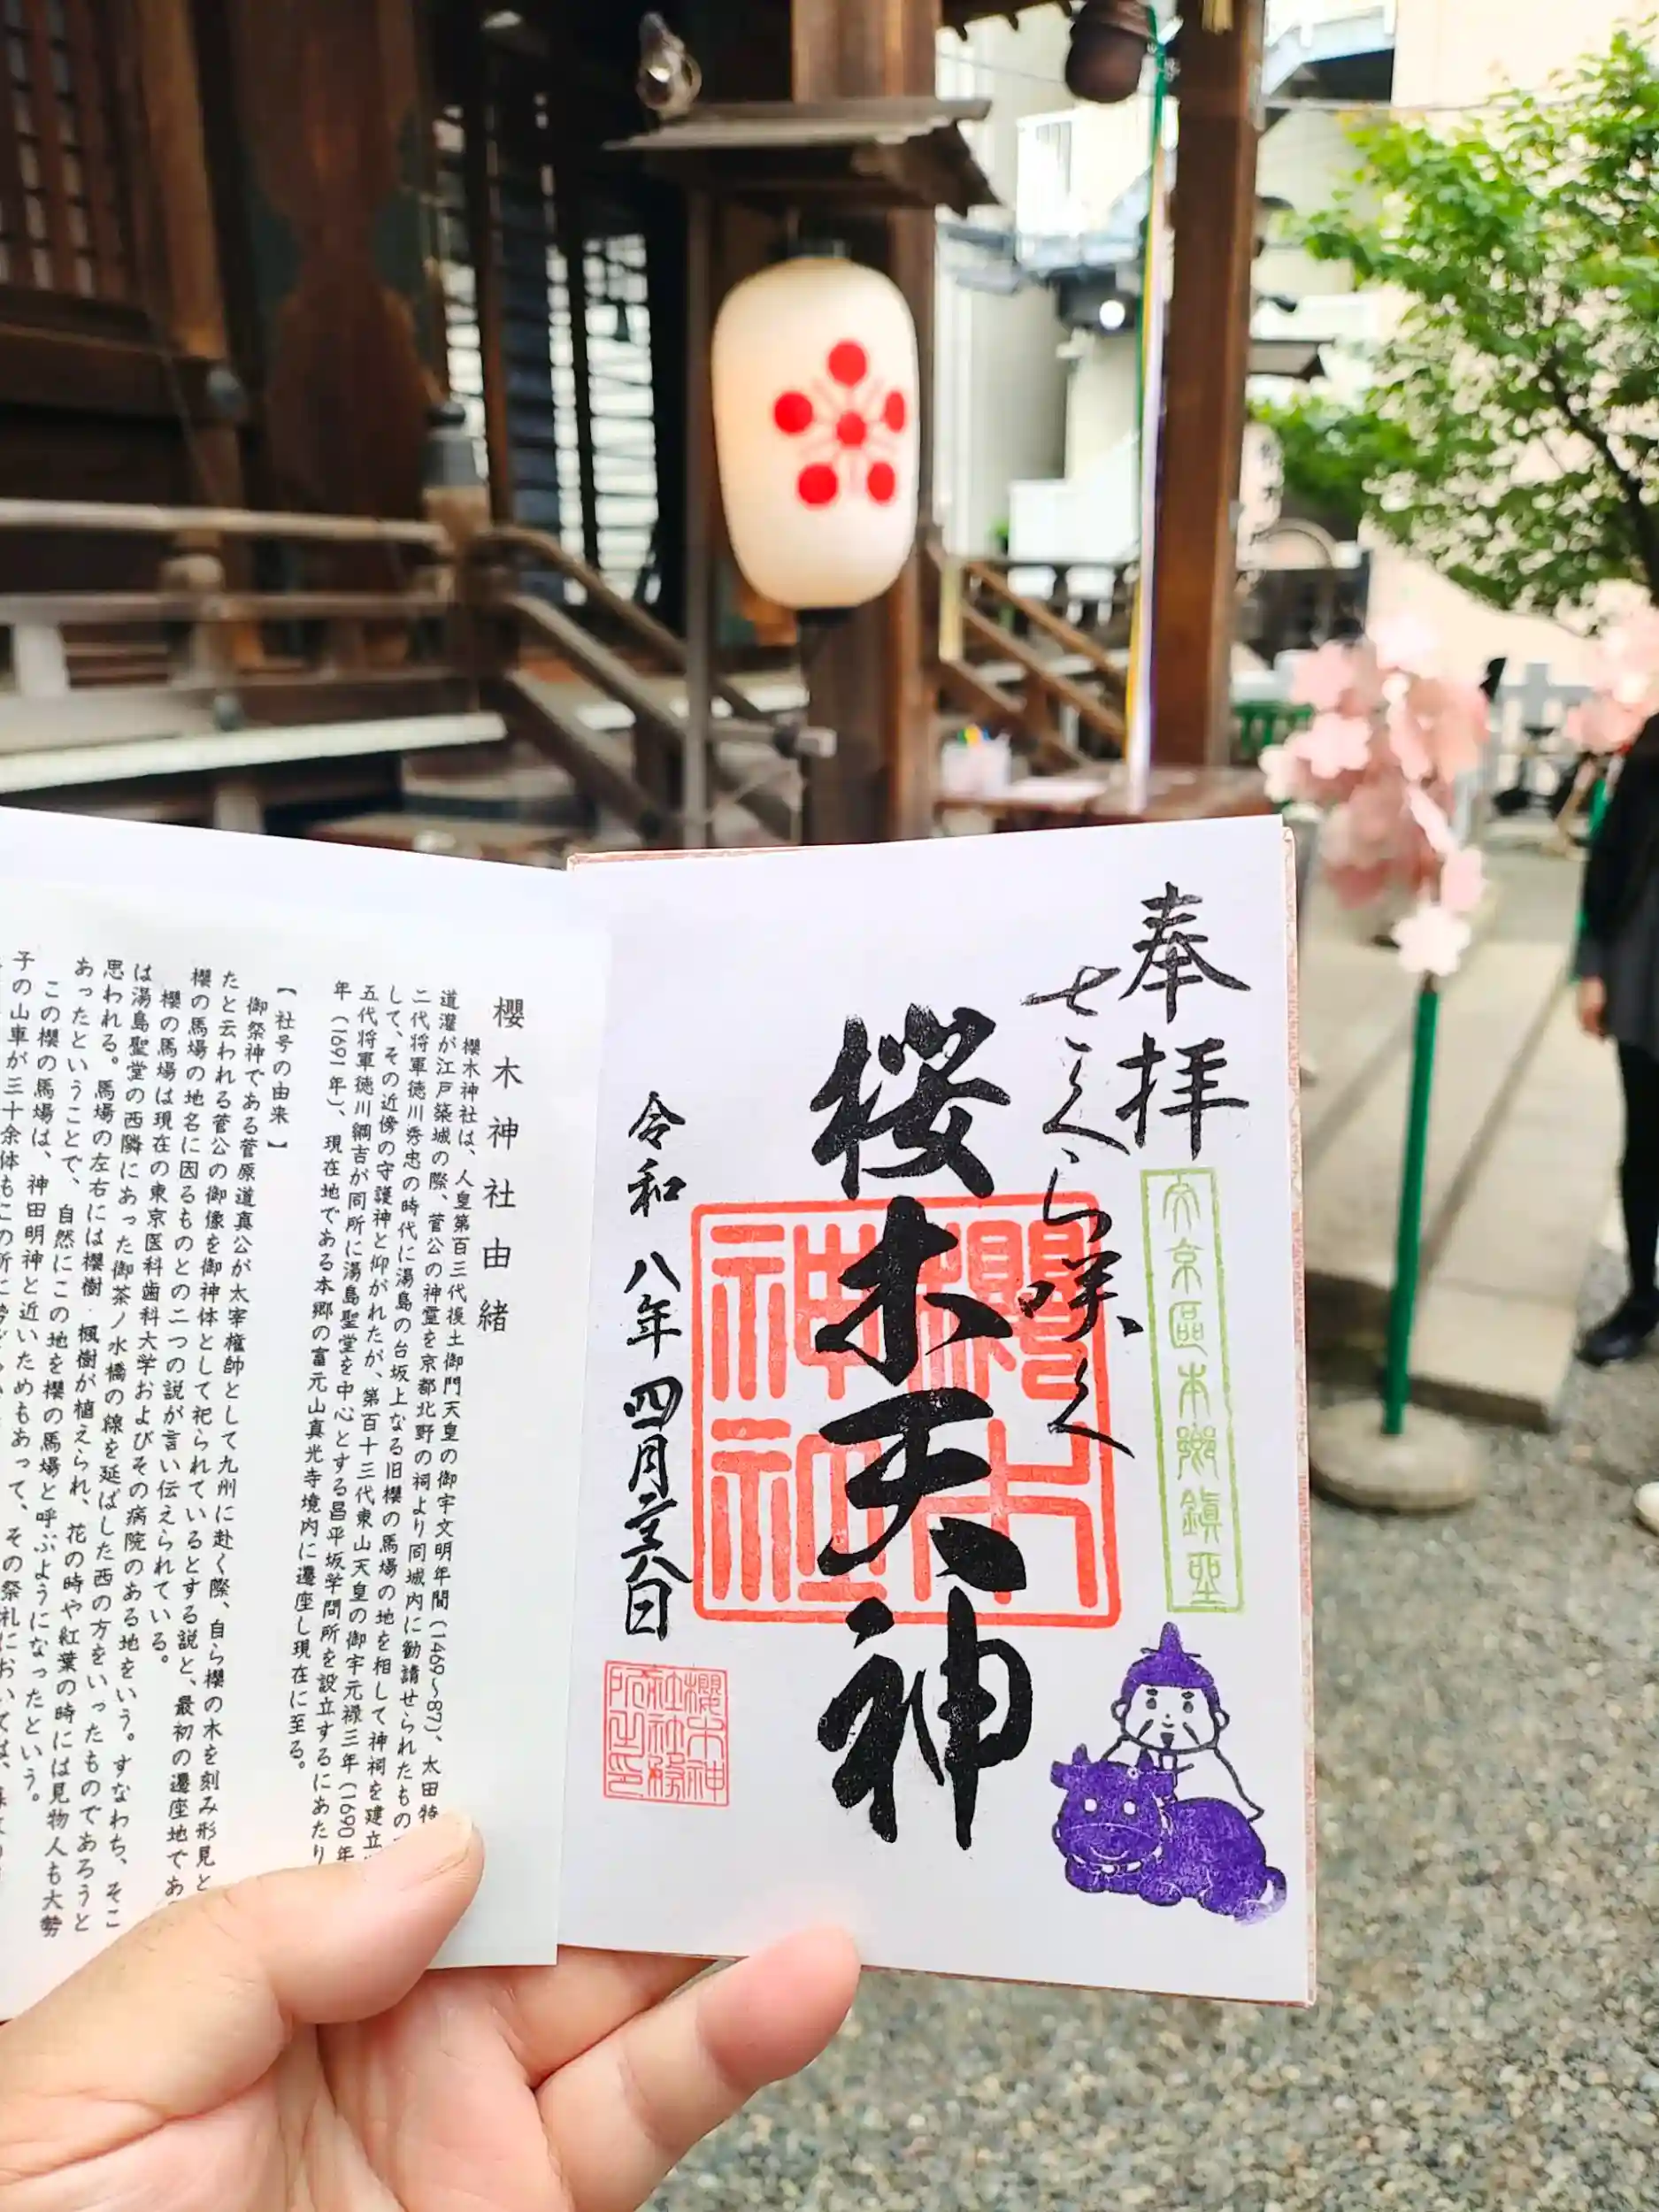 奉拝
さくら咲く
文京區本郷鎮座
桜木天神
櫻木神社
令和八年四月二十六日
櫻木神社社務所之印
櫻木神社由緒
櫻木神社は、人皇第百三代後土御門天皇の御宇文明年間(1469~87)、太田
道灌が江戸築城の際、菅公の神霊を京都北野の祠より同城内に勧請せられたもので
二代将軍徳川秀忠の時代に湯島の台坂上なる旧櫻の馬場の地を相して神祠を建立
して、その近傍の守護神と仰がれたが、第百十三代東山天皇の御宇元禄三年(1690年
五代将軍徳川綱吉が同所に湯島聖堂を中心とする昌平坂学問所を設立するにあたり
年(1691年)、現在地である本郷の富元山真光寺境内に遷座し現在に至る。
【社号の由来】
御祭神である菅原道真公が太宰権師として九州に赴く際、自ら櫻の木を刻み形見と
たと云われる菅公の御像を御神体として祀られているとする説と、最初の遷座地であ
櫻の馬場の地名に因るものとの二つの説が言い伝えられている。
櫻の馬場は現在の東京医科歯科大学およびその病院のある地をいう。すなわち、そこ
は湯島聖堂の西隣にあった御茶ノ水橋の線を延ばした西の方をいったものであろうと
思われる。馬場の左右には櫻樹・楓樹が植えられ、花の時や紅葉の時には見物人も大勢
あったということで、自然にこの地を櫻の馬場と呼ぶようになったという。
この櫻の馬場は、神田明神と近いためもあって、その祭礼においては、
子の山車が三十余体もこの所に